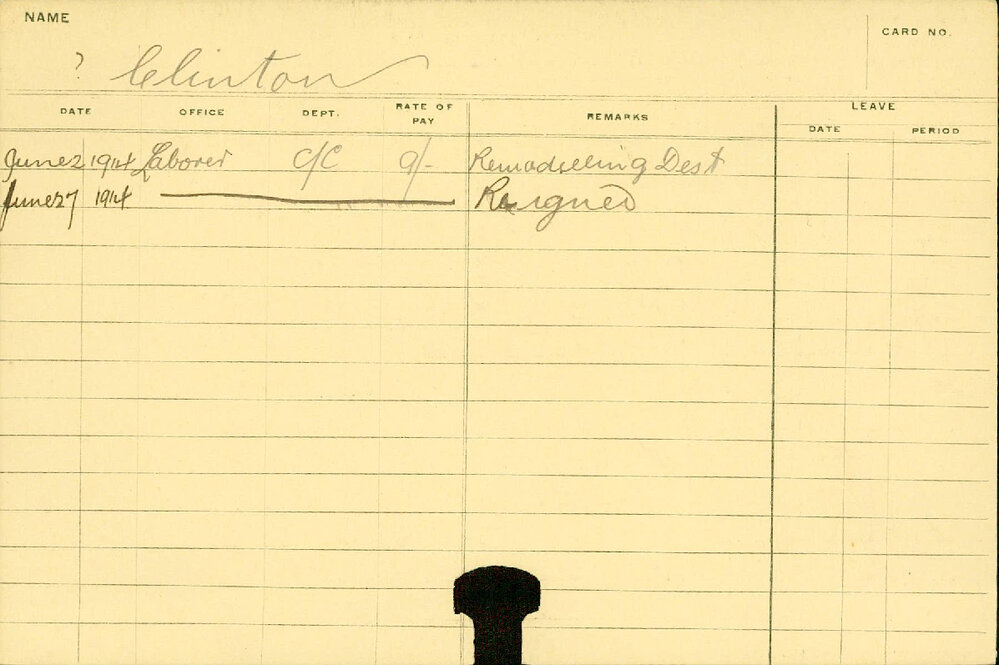 NAME
CARD NO.
? Clinton
DATE OFFICE DEPT. RATE OF PAY REMARKS LEAVE
DATE PERIOD
June 2 1914 Laborer C/C 9/- Remodelling Dest
June 27 1914 Resigned